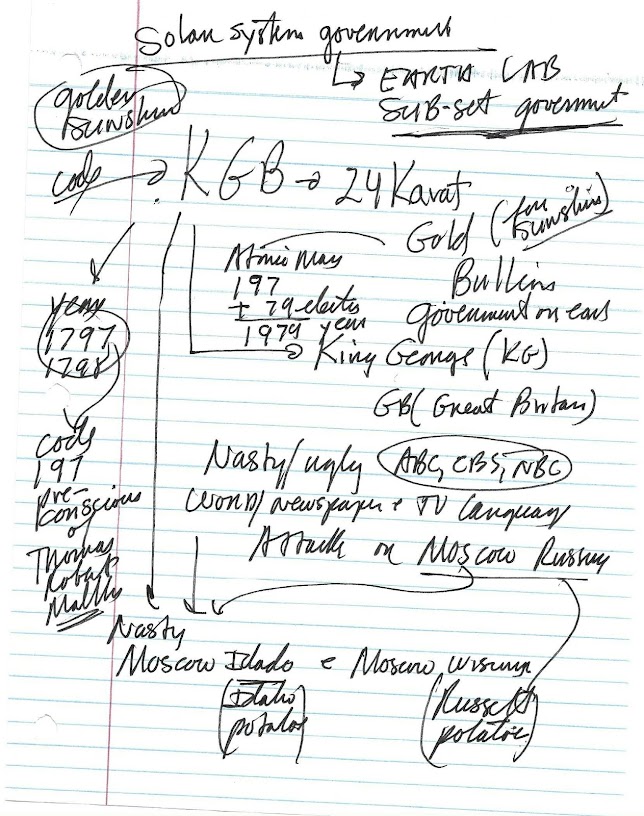 Solar system government
↳ EARTH LAB
SUB-set goverment
golden
sunshine
code → KGB → 24 Karat
Gold (for sunshine)
Bullion
government on
Atomic Mass
197
+ 79 electro
1979 year
years
1797
1798
King George (KG)
GB (Great Britain)
code
197
pre-
conscious
of
Thomas
Robert
Malthu
Nasty/ugly ABC, CBS, NBC
word/newspaper + TV language
Attack on Moscow Russia
Nasty
Moscow Idado e Moscow
(Idaho
potatoe)
(Russett
potatoe)